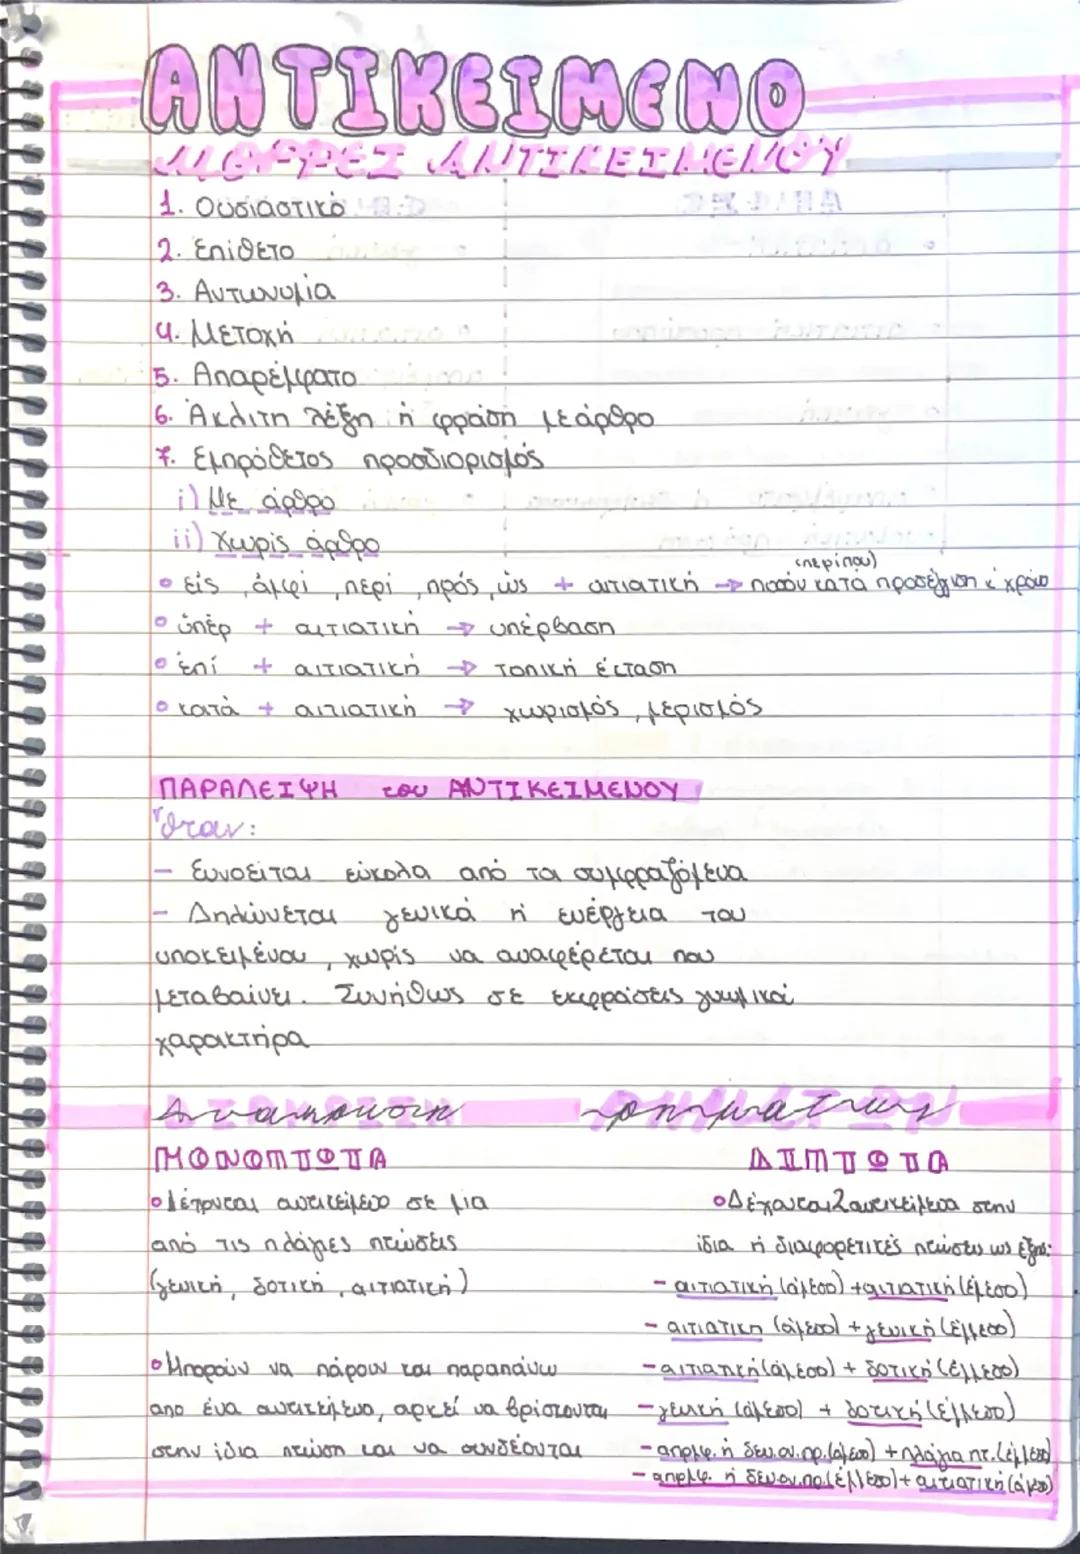 ΑΝΤΙΚΕΙΜΕΝΟ
ΜΟΡΦΕΣ ΑΝΤΙΚΕΙΜΕΝΟΥ
1. Ουσιαστικό
2. Επίθετο
3. Αντωνυμία
4. Μετοχή
5. Απαρέμφατο
6. Άκλιτη λέξη ή φράση με άρθρο
7. Εμπρόθετος προσδιορισμός
i) Με άρθρο
ii) Χωρίς άρθρο
(περίπου)
• εἰς, ἀμφί, περί, πρός, ὡς + αιτιατική → ποσόν κατά προσέγγιση ή χρόνο
• ὑπέρ + αιτιατική → υπέρβαση
• ἐπί + αιτιατική → τοπική έκταση
• κατά + αιτιατική → χωρισμός, μερισμός
ΠΑΡΑΛΕΙΨΗ του ΑΝΤΙΚΕΙΜΕΝΟΥ
Όταν:
- Εννοείται εύκολα από τα συμφραζόμενα
- Δηλώνεται γενικά η ενέργεια του
υποκειμένου, χωρίς να αναφέρεται που
μεταβαίνει. Συνήθως σε εκφράσεις γνωμικού
χαρακτήρα
ρημάτων
ΜΟΝΟΠΤΩΤΑ
• Δέχονται αντικείμενο σε μια
από τις πλάγιες πτώσεις
(γενική, δοτική, αιτιατική)
• Μπορούν να πάρουν και παραπάνω
απο ένα αντικείμενο, αρκεί να βρίσκονται
στην ίδια πτώση και να συνδέονται
ΔΙΠΤΩΤΑ
• Δέχονται 2 αντικείμενα στην
ίδια ή διαφορετικές πτώσεις ως εξής:
- αιτιατική (άμεσο) + αιτιατική (έμμεσο)
- αιτιατική (άμεσο) + γενική (έμμεσο)
- αιτιατική (άμεσο) + δοτική (έμμεσο)
- γενική (άμεσο) + δοτική (έμμεσο)
- απρμφ. ή δευ.ον.πρ. (άμεσο) + πλάγια πτ. (έμμεσο)
- απρμφ. ή δευ.ον.πρ. (έμμεσο) + αιτιατική (άμεσο)